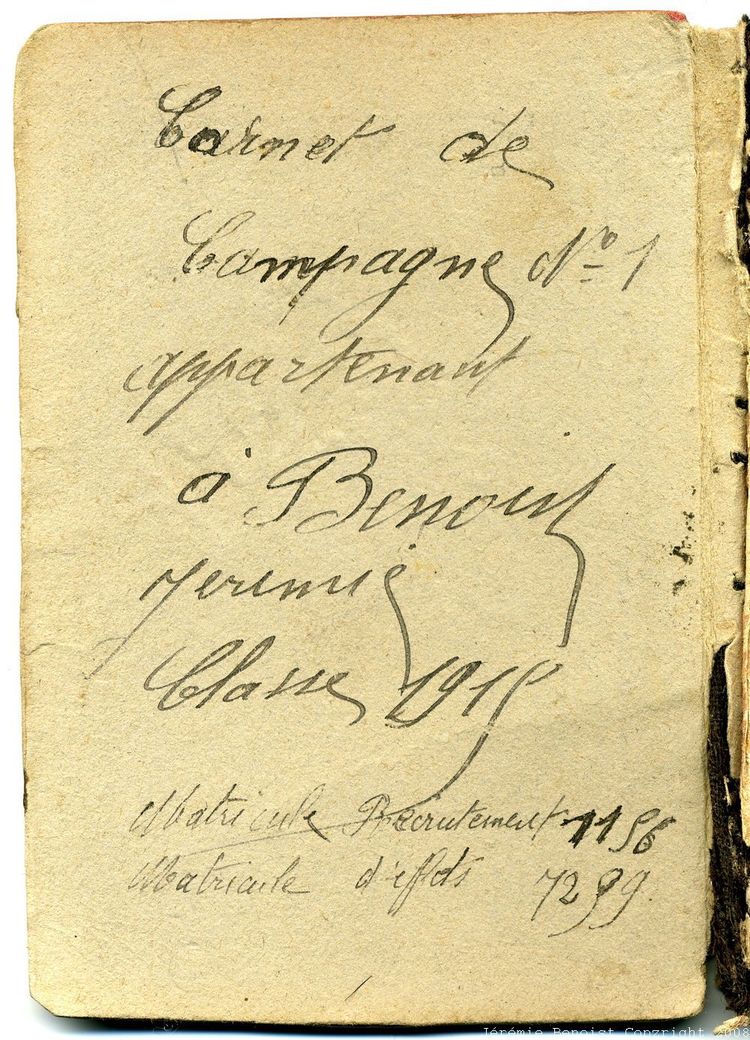 Carnet de
Campagne Nº 1
appartenant
à Benoist
Jeremie
Classe 1915
Matricule Recrutement 1156
Matricule d'effets 7299
Jérémie Benoist Copyright 2008